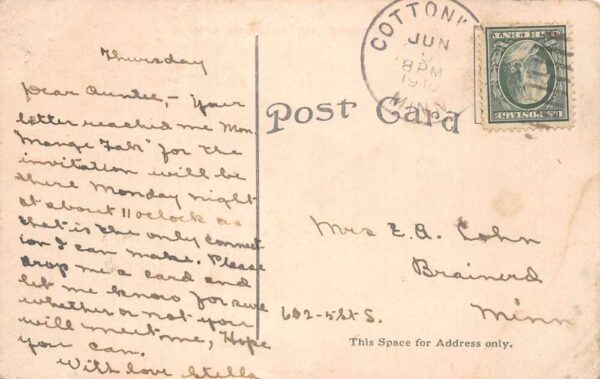 Thursday
Dear Auntie,- Your
letter reached me Mon.
for the
invitation will be
there Monday night
at about 11 oclock as
that is the only connect
ion I can make. Please
drop me a card and
let me know for sure
whether or not you
will meet me, Hope
you can.
With love Stella
Post Card
COTTONW
JUN
8 PM
1910
MINN
U.S. POSTAGE
Mrs E. A. Cohn
Brainerd
Minn
602-5th S.
This Space for Address only.